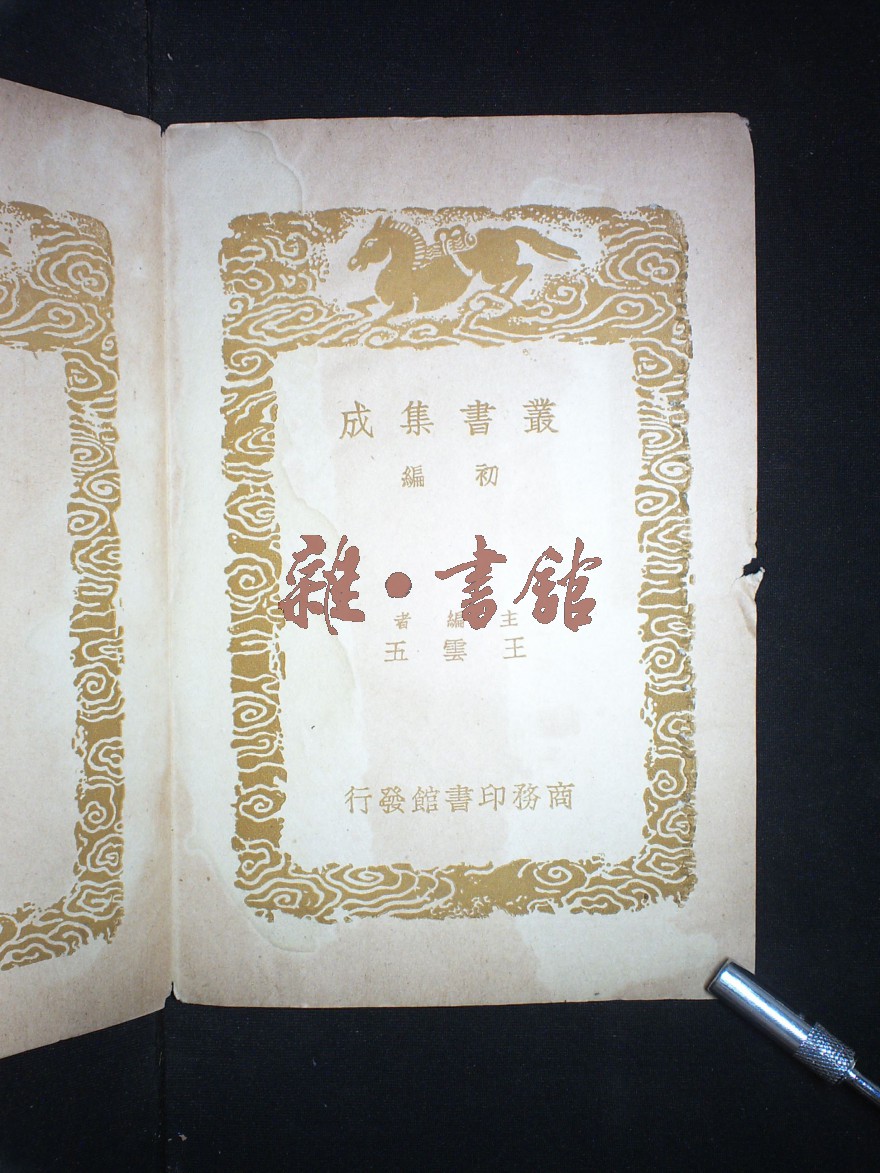 叢書集成
初編
雜·書館
主編者
王雲五
商務印書館發行